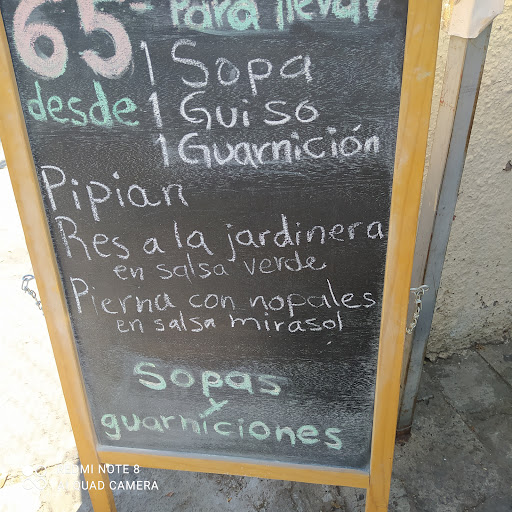 65- Para llevar
desde
1 Sopa
1 Guiso
1 Guarnición
Pipian
Res a la jardinera
en salsa verde
Pierna con nopales
en salsa mirasol
Sopas
y
guarniciones
MI NOTE 8
QUAD CAMERA